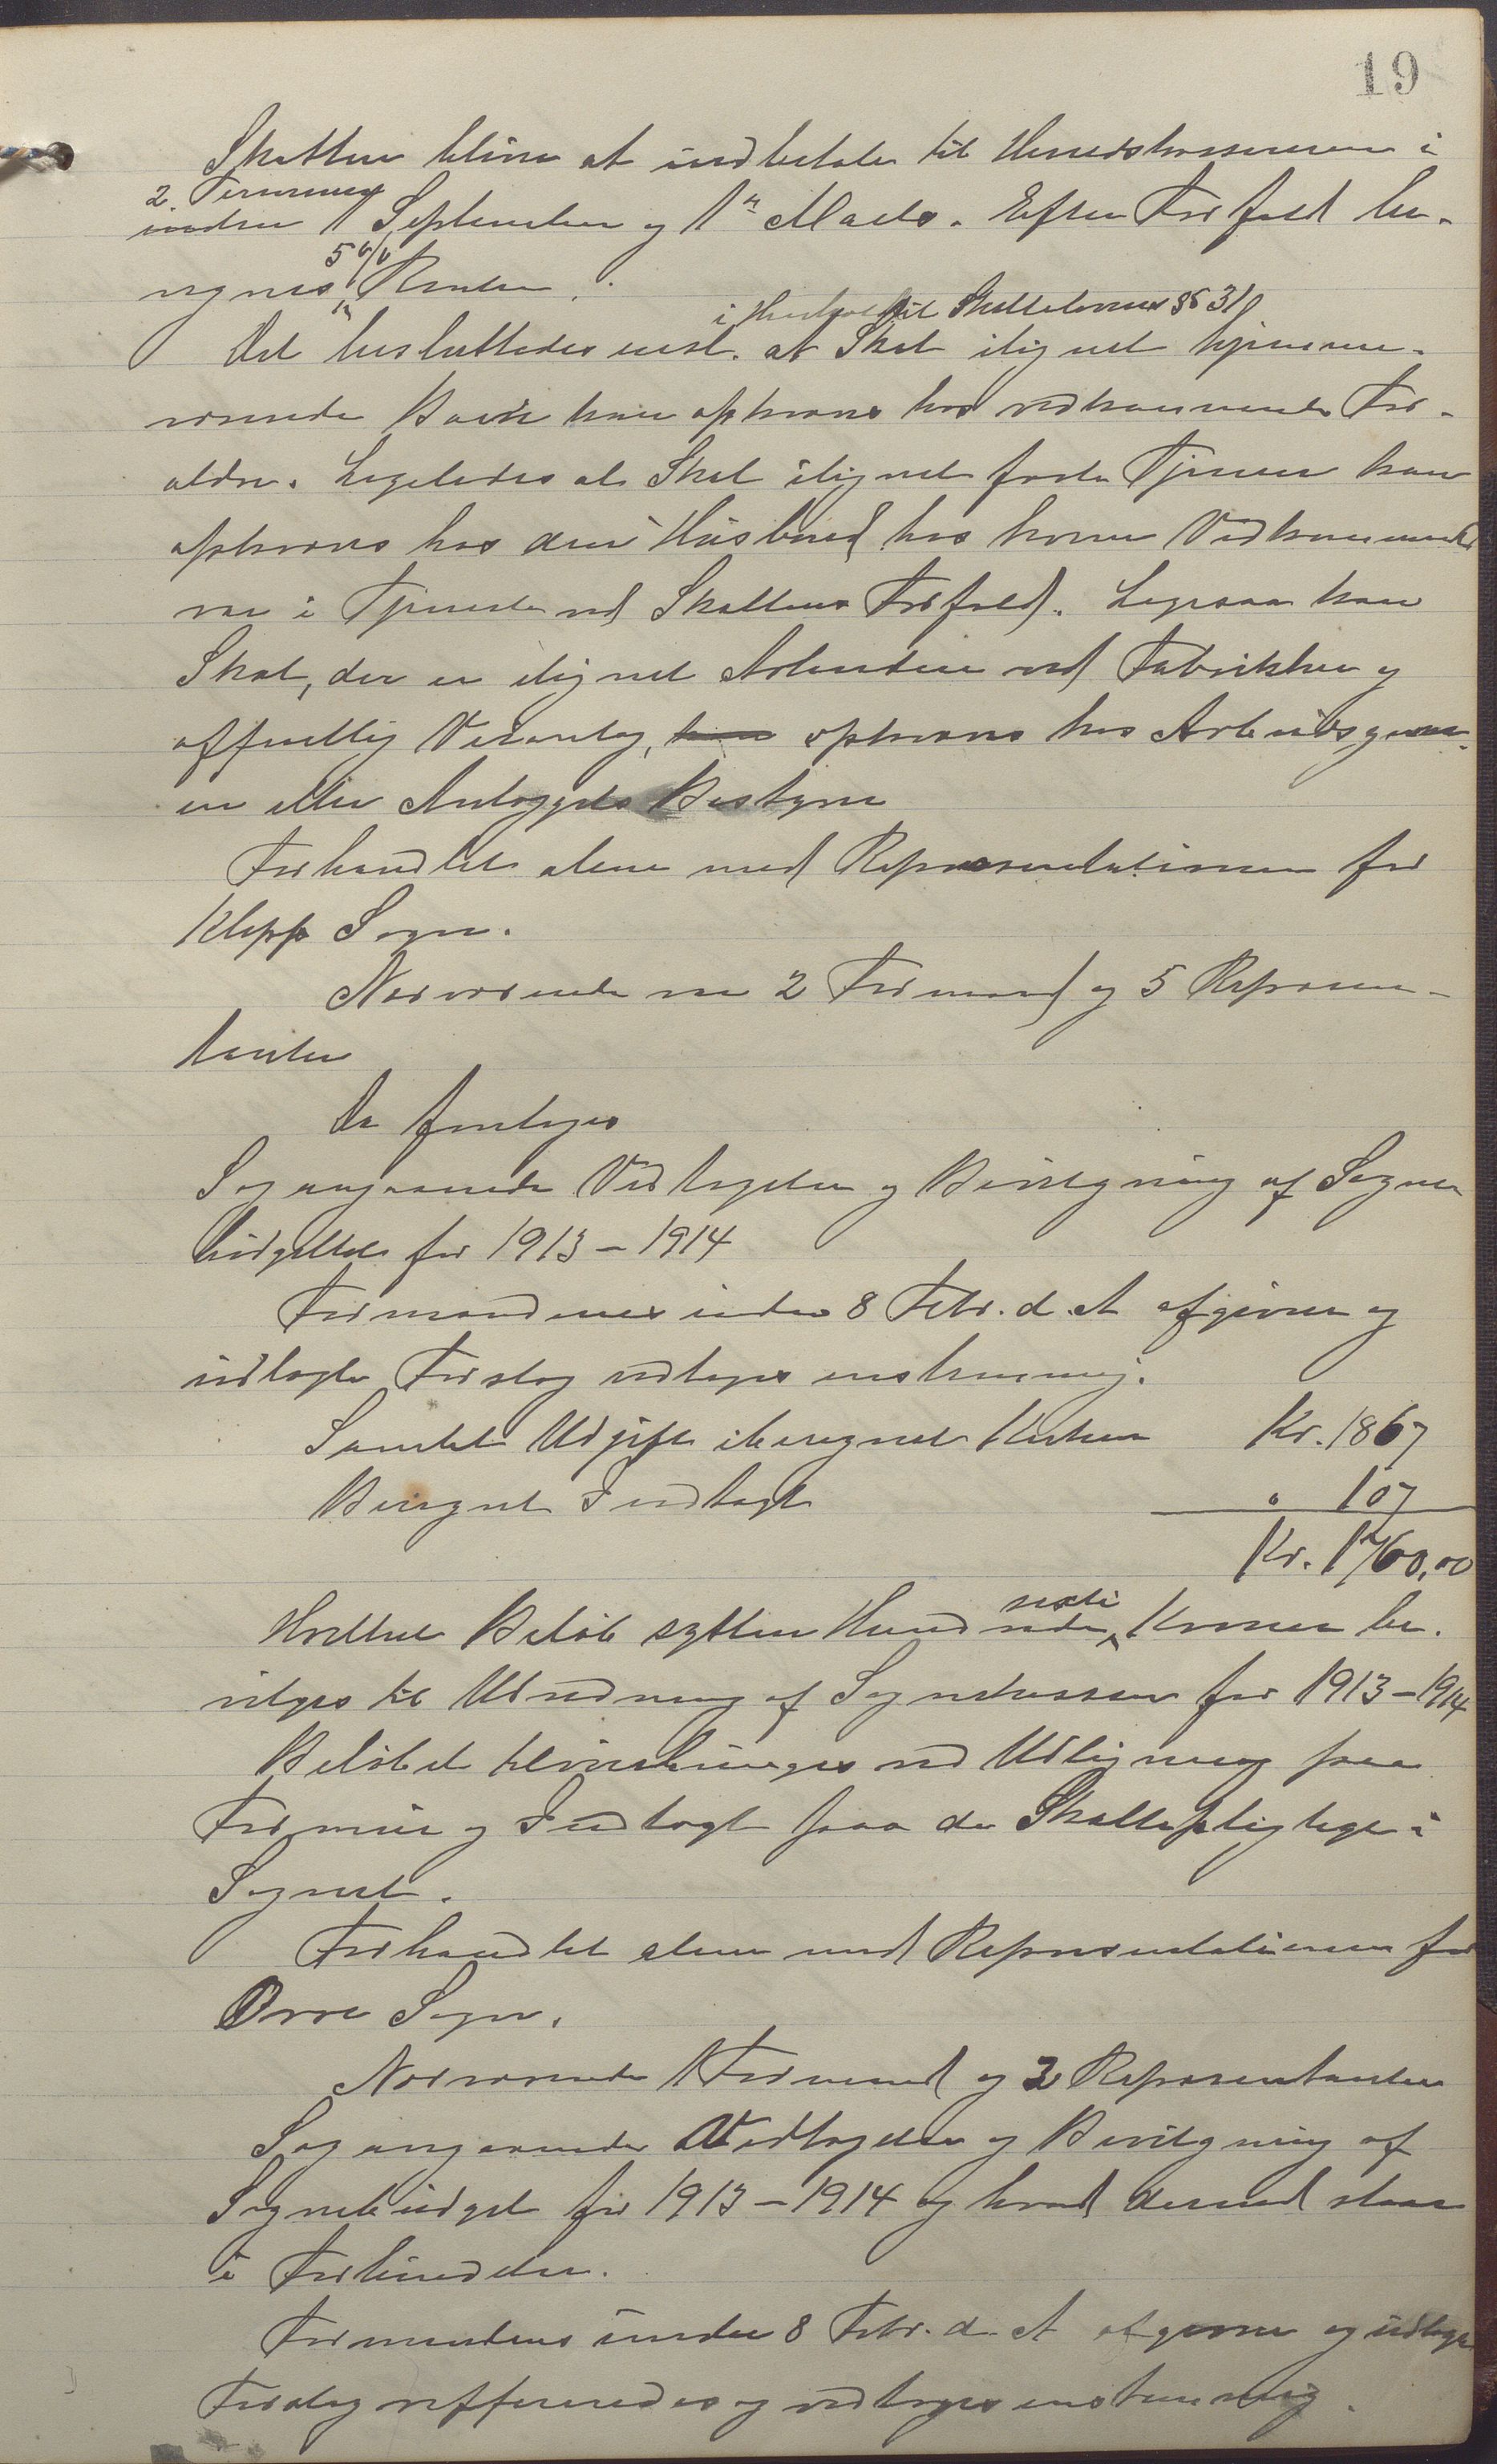 19
Skatten bliver at indbetale til Herredskassereren i
2 Terminer
inden 1 September og 1ste Marts. Efter Forfald be-
5 %
regnes Renter.
i Henhold til Skatteloven §§ 31
Det besluttedes enst. at Skat ilignet hjemme-
værende Børn kan opkræves hos vedkommende For-
ældre. Ligeledes at Skat ilignet faste Tjenere kan
opkræves hos den Husbond hos hvem Vedkommende
var i Tjeneste ved Skattens Forfald. Ligesaa kan
Skat, der er ilignet Arbeidere ved Fabrikker og
offentlig Veianlæg, kan opkræves hos Arbeidsgiver-
en eller Anlæggets Bestyrer
Forhandlet alene med Repræsentationen for
Klepp Sogn.
Nærværende var 2 Formænd og 5 Repræsen-
tanter
Da foretoges
Sag angaaende Vedtagelse og Bevilgning af Sogne-
budgettet for 1913-1914
Formændenes under 8 Febr. d. A. afgivne og
udlagte Forslag vedtoges enstemmig.
Samlet Udgift iberegnet Kirken Kr. 1867
Beregnet Indtægt " 107
Kr. 1760,00
Hvilket Beløb sytten Hundrede sexti Kroner be-
vilges til Udredning af Sognekassen for 1913-1914
Beløbet tilveiebringes ved Udligning paa
Formue og Indtægt paa de Skattepligtige i
Sognet.
Forhandlet alene med Repræsentationen for
Orre Sogn.
Nærværende 1 Formand og 3 Repræsentanter
Sag angaaende Vedtagelse og Bevilgning af
Sognebudget for 1913-1914 og hvad dermed staar
i Forbindelse.
Formandens under 8 Febr. d. A. afgivne og udlagte
Forslag reffereredes og vedtoges enstemmig.